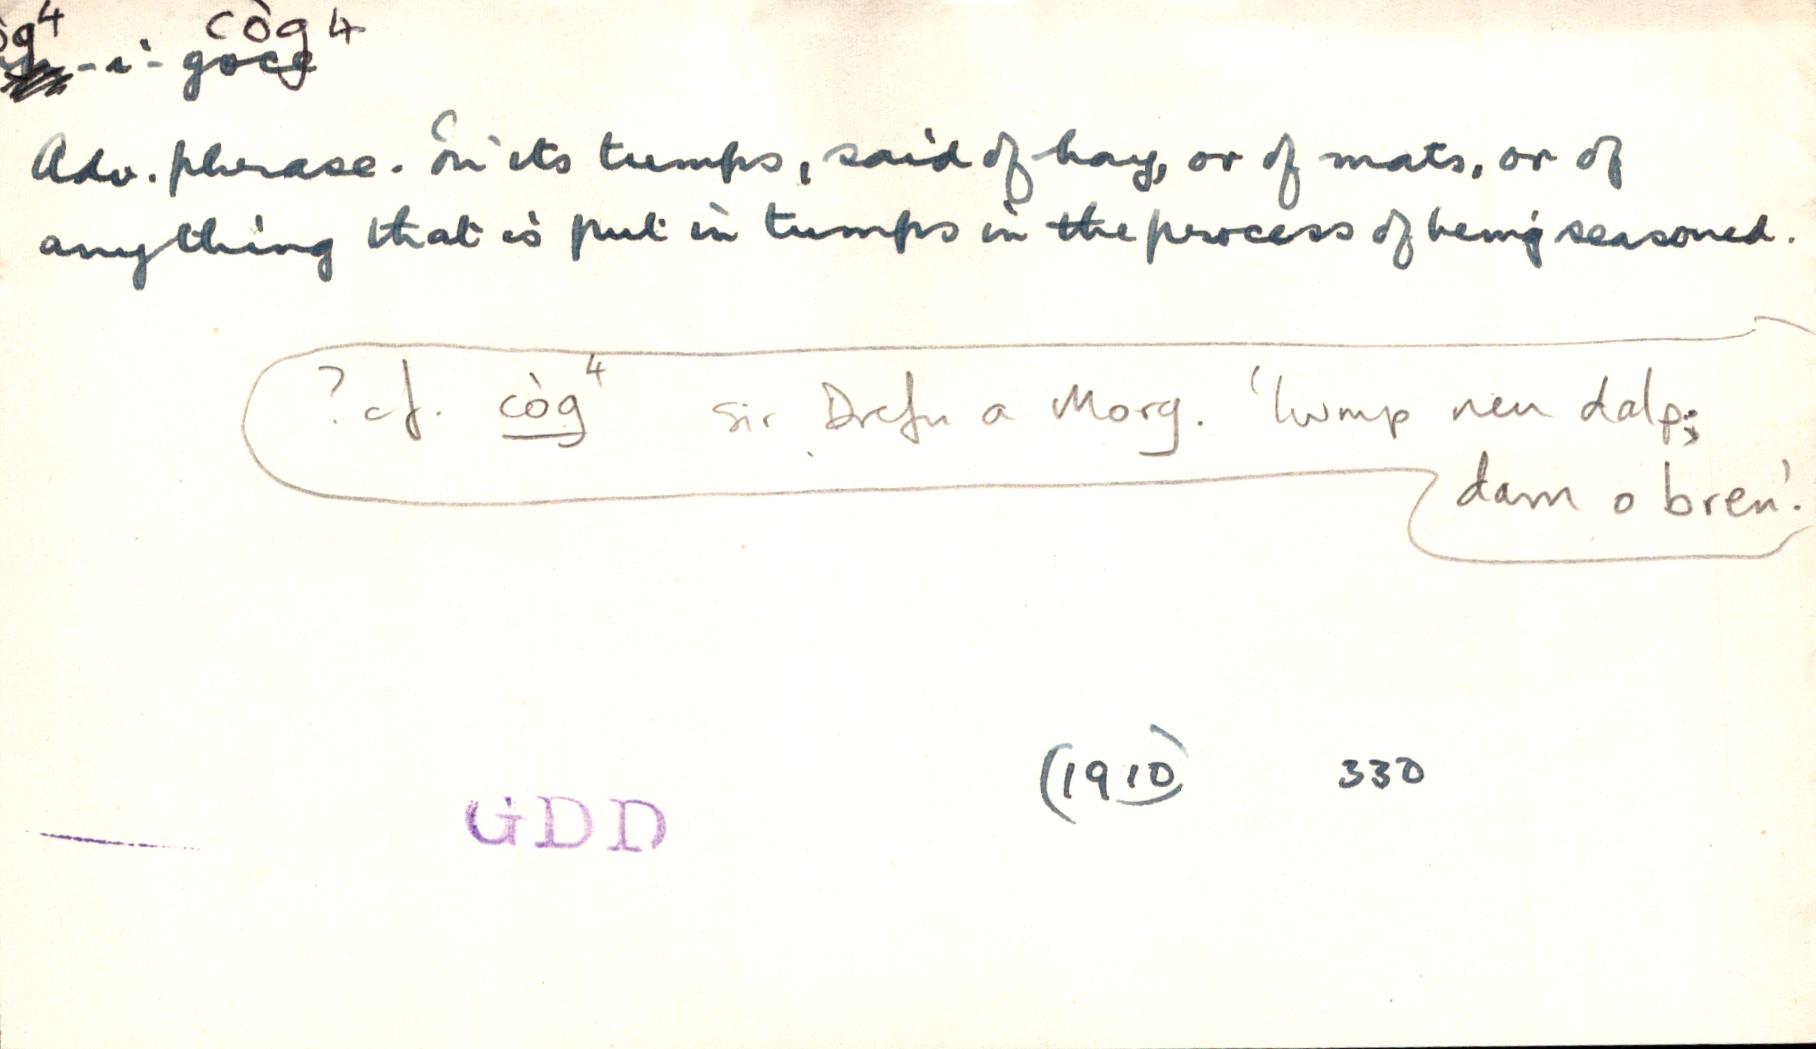 còg 4
-i- gocg
Adv. phrase. In its tumps, said of hay, or of mats, or of
anything that is put in tumps in the process of being seasoned.
? cf. còg⁴ sir Drefn a Morg. 'lwmp neu dalp;
darn o bren'.
(1910) 330
GDD